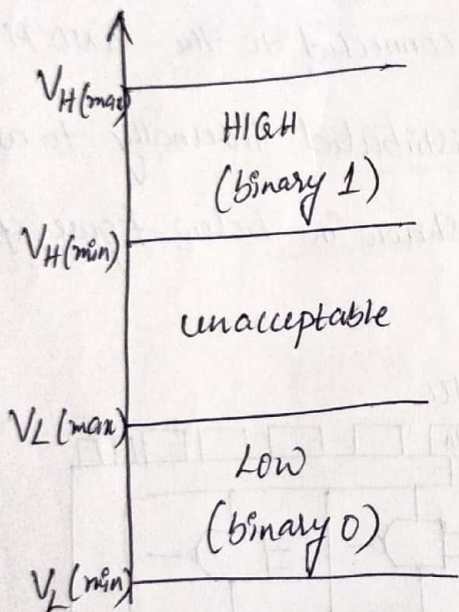 V_H(max)
HIGH
(binary 1)
V_H(min)
unacceptable
V_L(max)
LOW
(binary 0)
V_L(min)